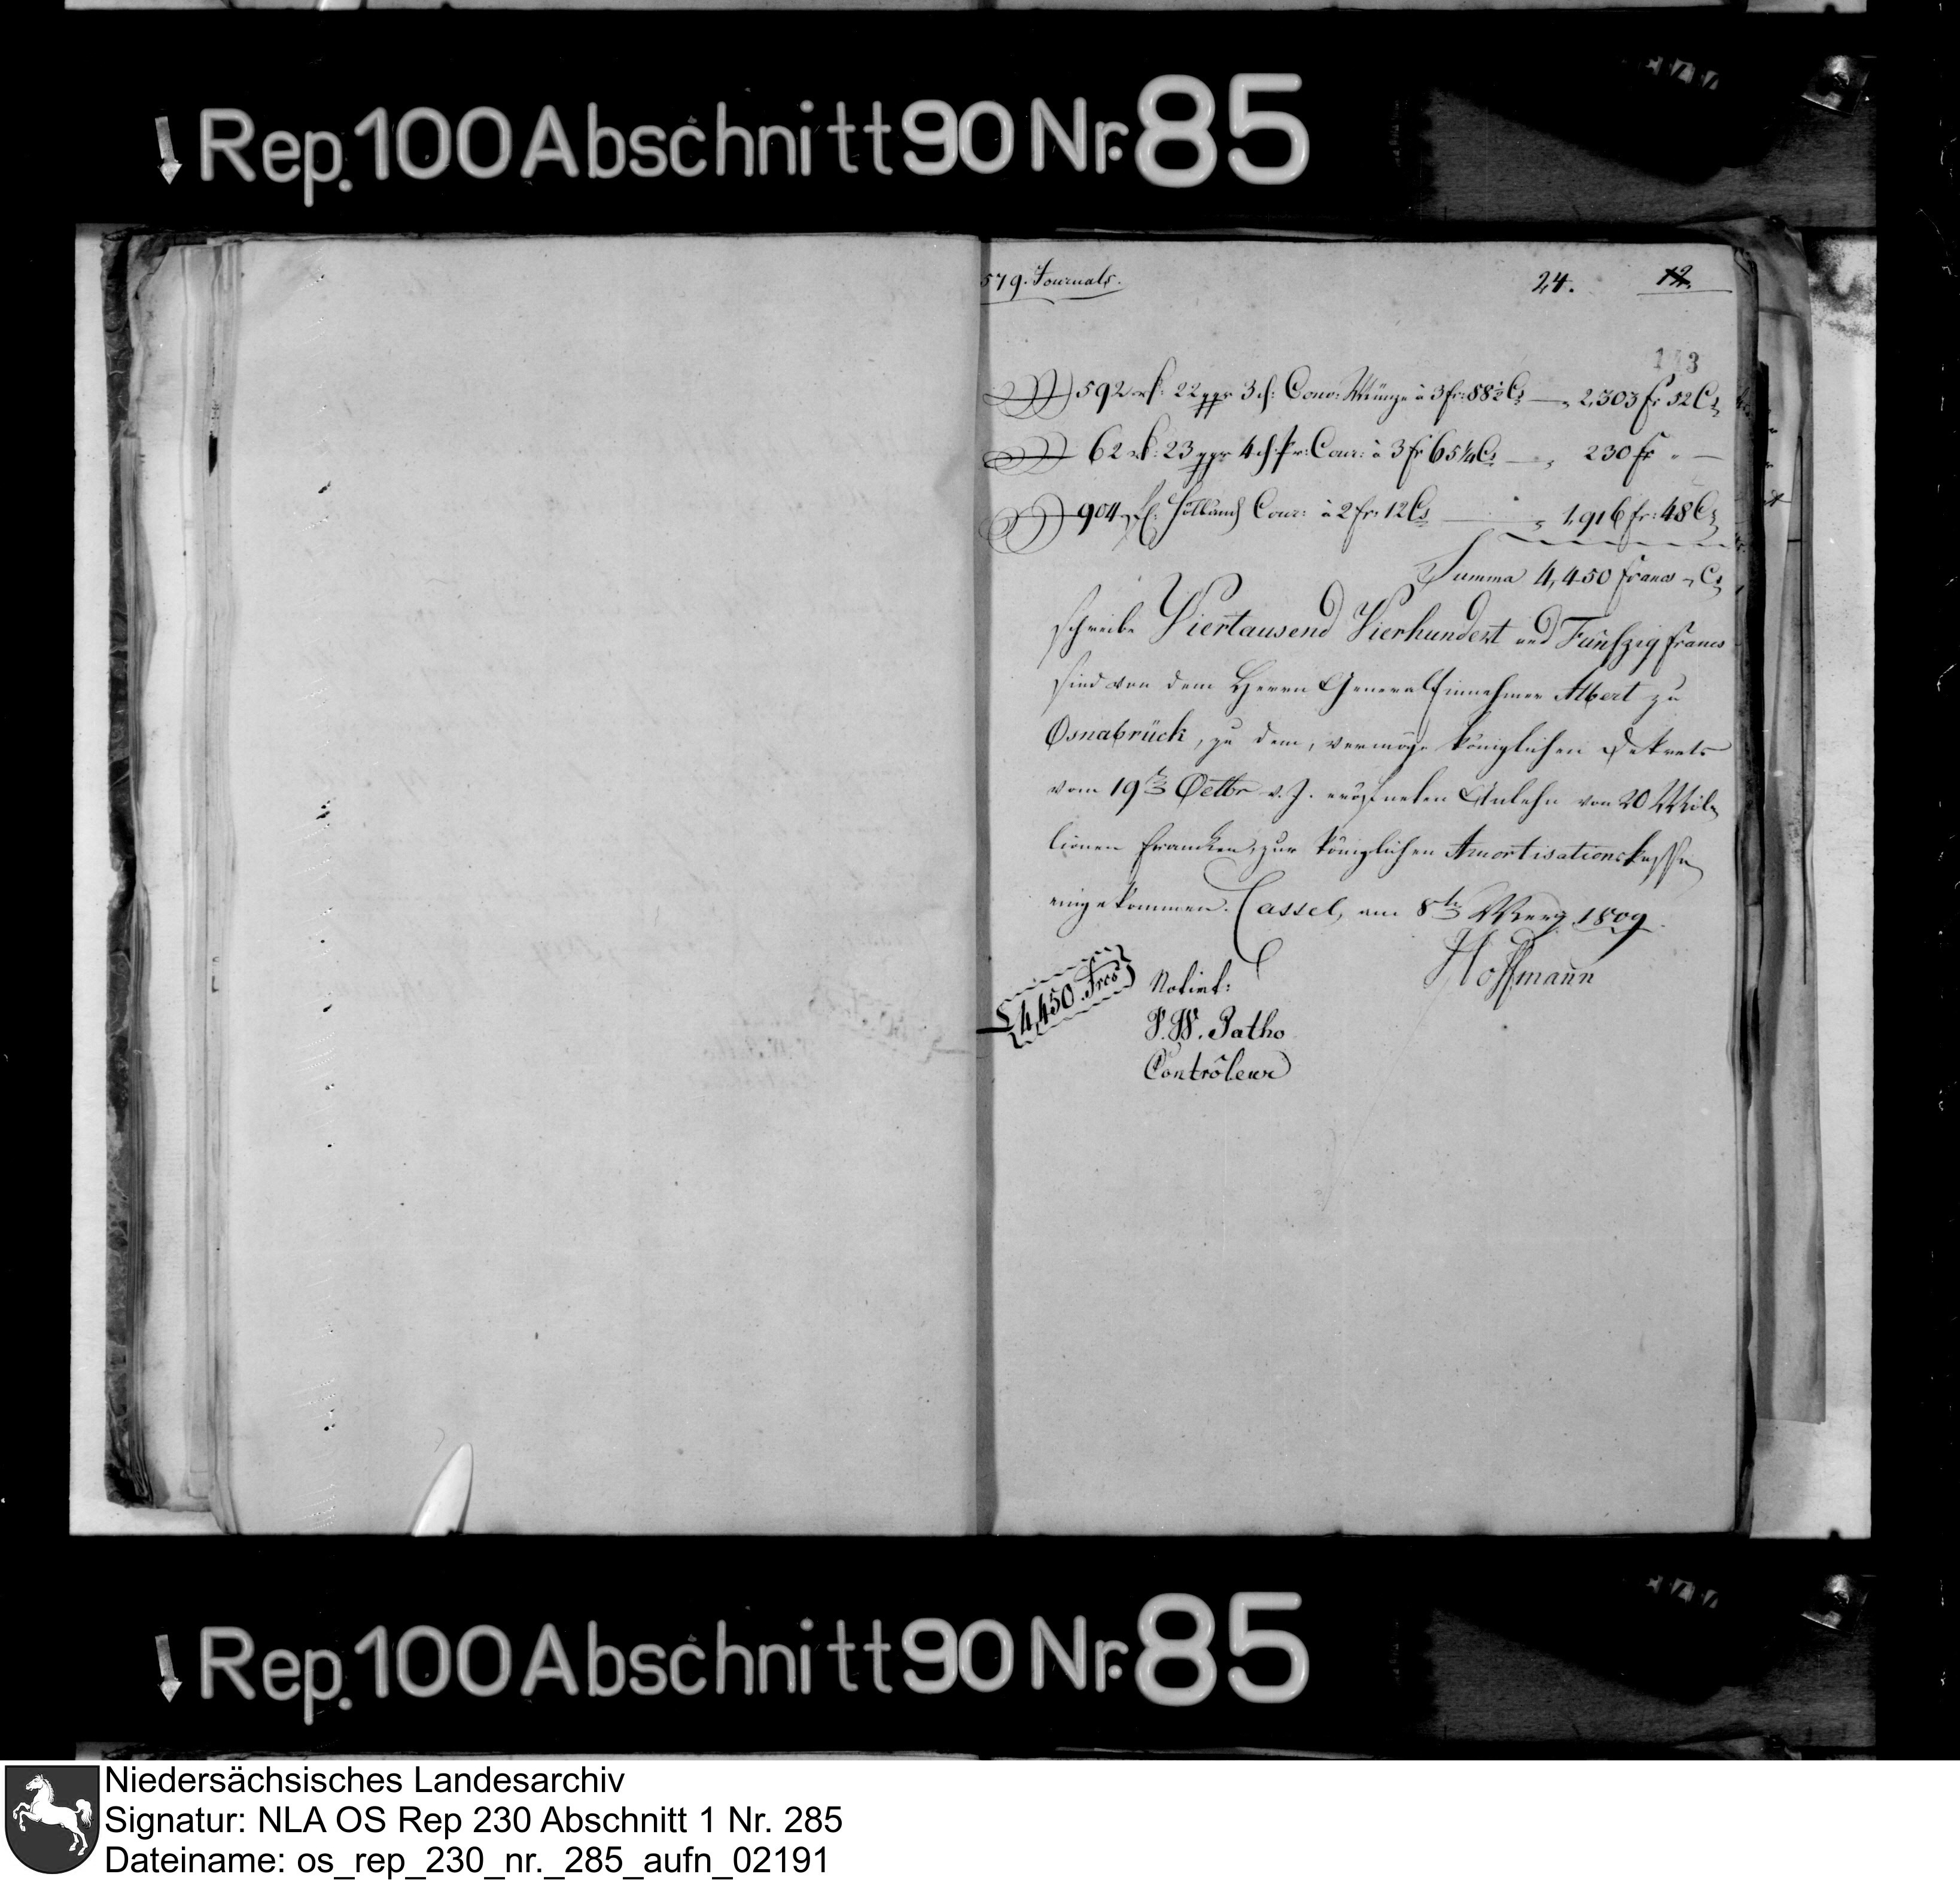 Rep. 100 Abschnitt 90 Nr. 85
579. Journals.
24. 12.
133
592 rt: 22 ggr 3 ch: Conv: Münze à 3 fr: 88½ Cs — „ 2,303 fr 52 Cs
62 rt: 23 ggr 4 ch Pr: Cour: à 3 fr 65¼ Cs — „ 230 fr „ —
904 fl: Holländ Cour: à 2 fr: 12 Cs — „ 1,916 fr: 48 Cs
Summa 4,450 francs „ Cs
schreibe Viertausend Vierhundert und Fünfzig francs
sind von dem Herrn General Einnehmer Albert zu
Osnabrück, zu dem, vermöge königlichen Dekrets
vom 19ten Octbr v. J. eröfneten Anlehn von 20 Mil-
lionen Franken, zur königlichen Amortisationskasse
eingekommen. Cassel, am 8ten Merz 1809.
Hoffmann
4,450 Frcs
Notirt:
P. W. Patho
Contrôleur
Rep. 100 Abschnitt 90 Nr. 85
Niedersächsisches Landesarchiv
Signatur: NLA OS Rep 230 Abschnitt 1 Nr. 285
Dateiname: os_rep_230_nr._285_aufn_02191